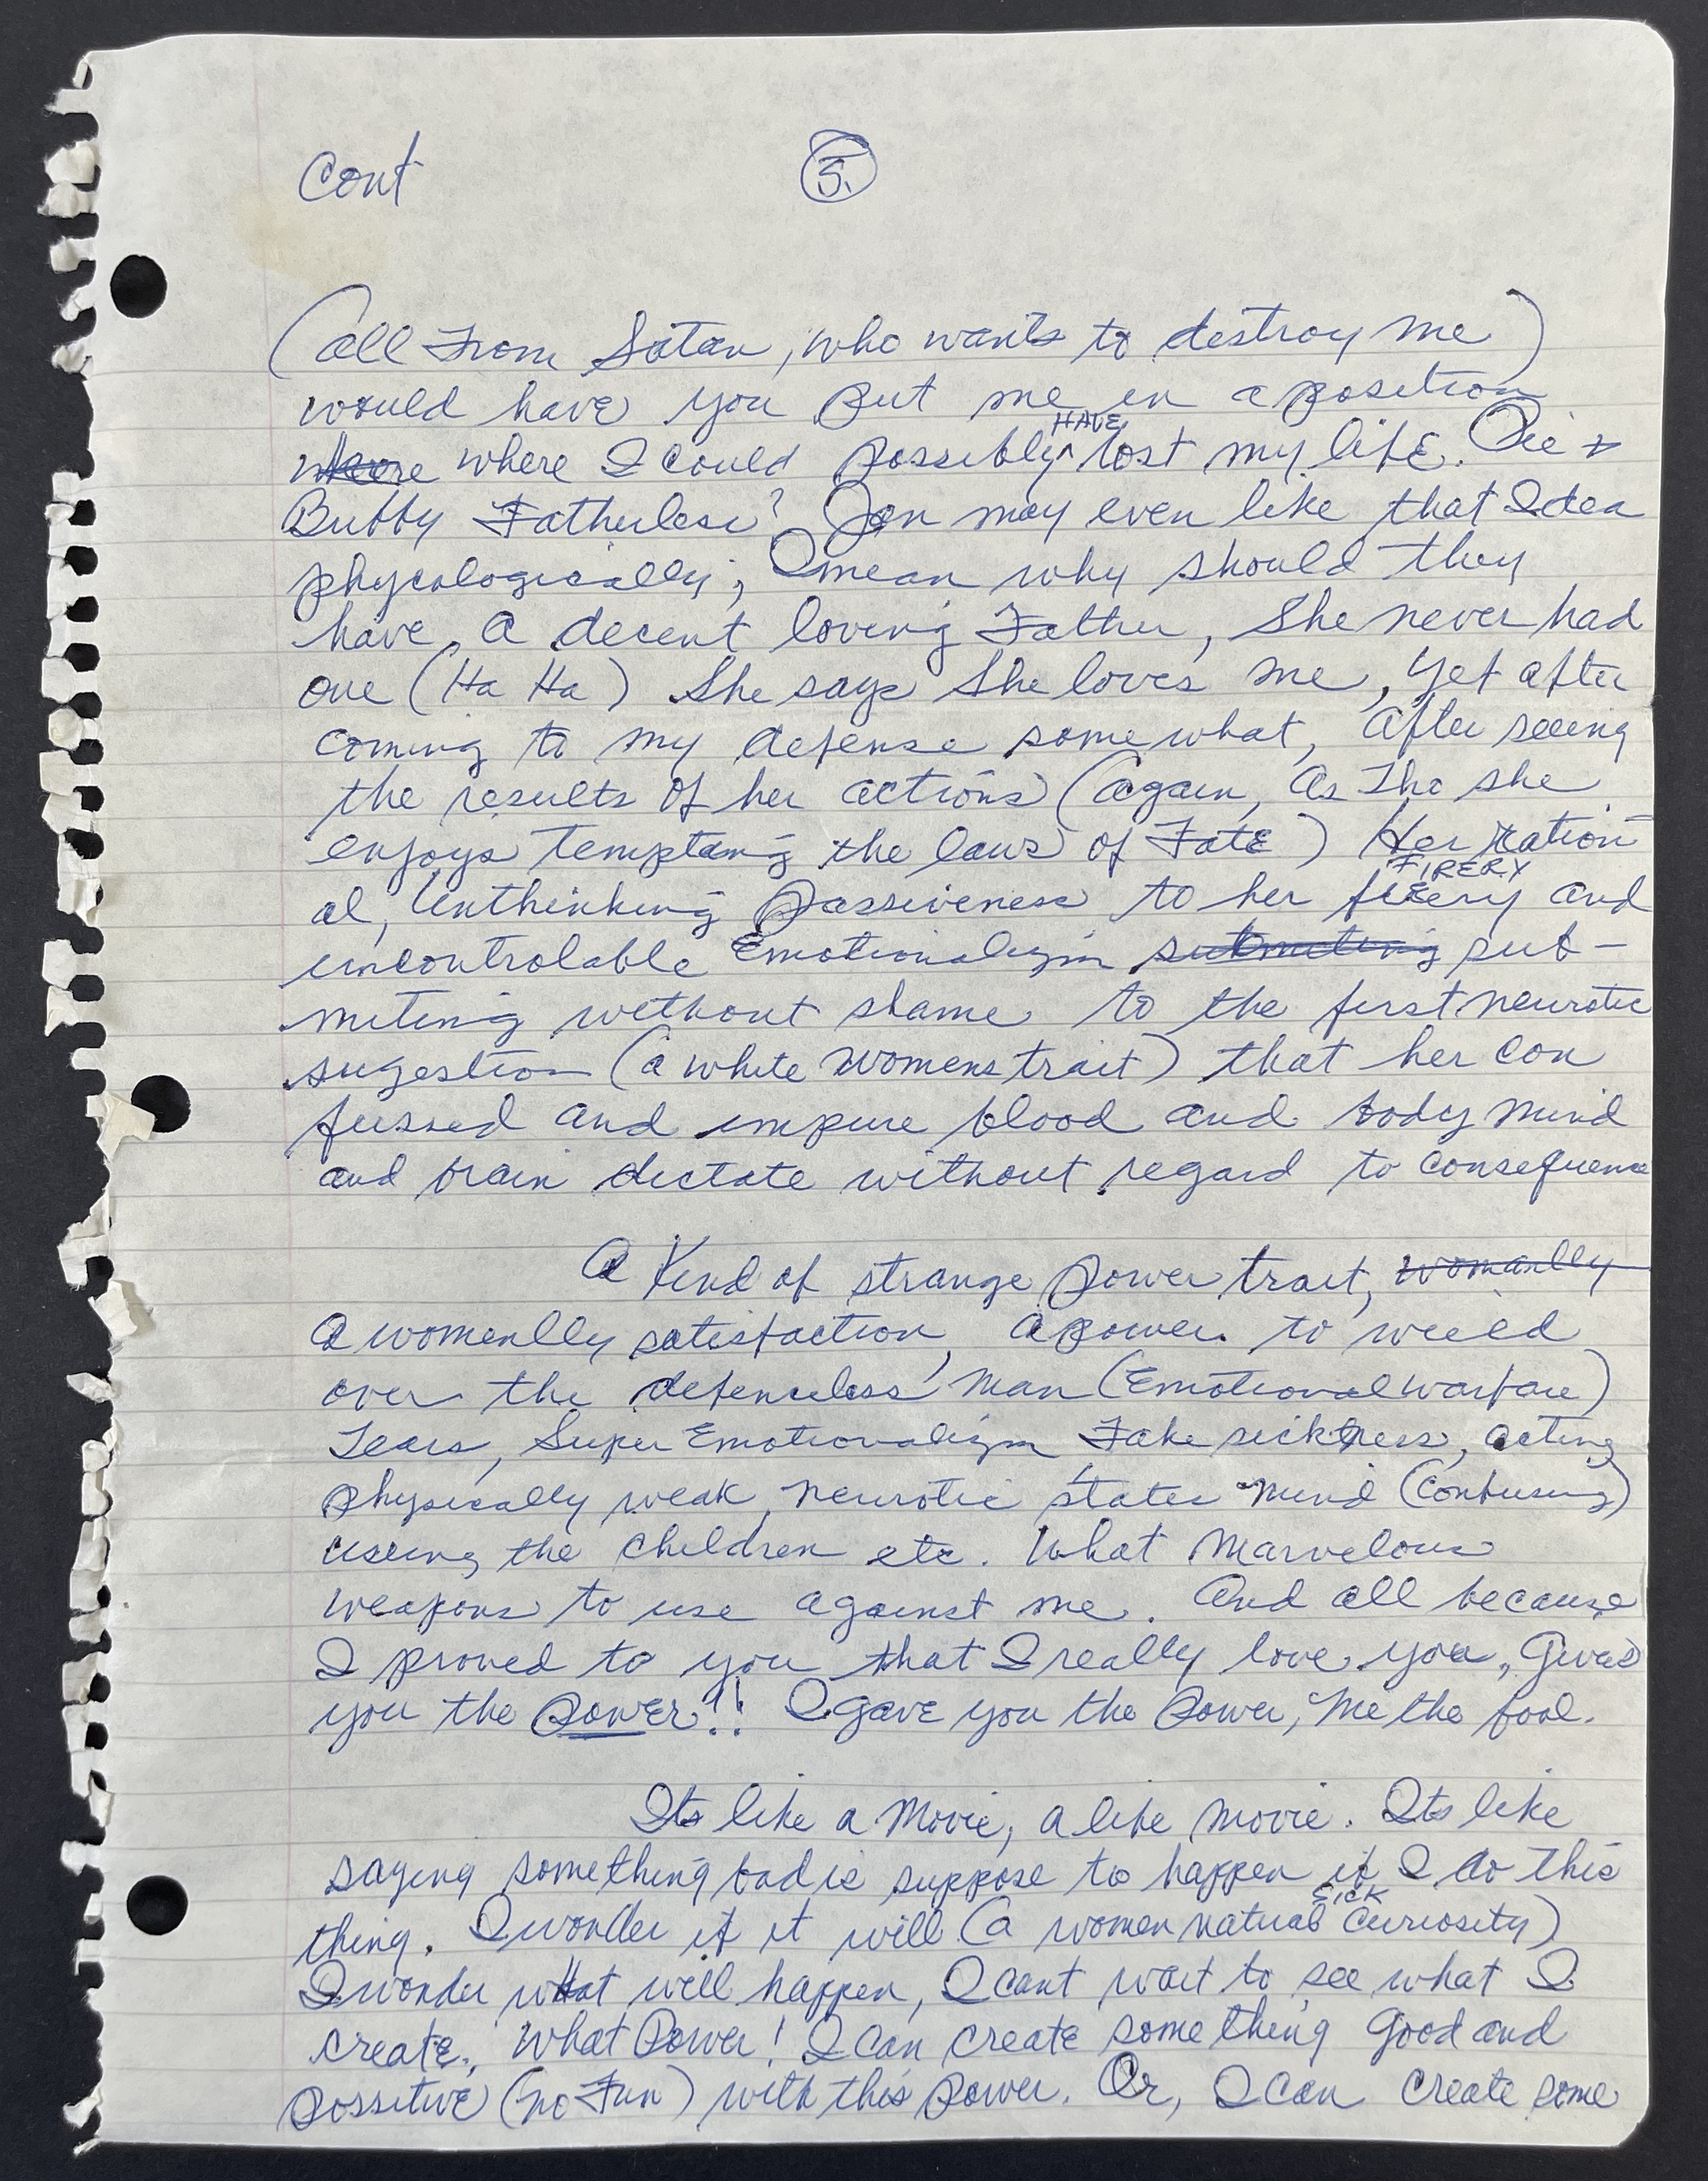 Cont
5.
(all From Satan, who wants to destroy me)
would have you put me in a position
where where I could possibly HAVE lost my life. Pie +
Bubby Fatherless? Jan may even like that Idea
phycologically, I mean why should they
have, a decent loving Father, She never had
one (Ha Ha) She says She loves me, yet after
coming to my defense somewhat, after seeing
the results of her actions (again, as Tho she
enjoys Tempting the laws of Fate) Her ration
al, Unthinking Passiveness to her fiery FIRERY and
uncontrolable Emotionalizm submiting sub-
miting without shame to the first neurotic
sugestion (a white womens trait) that her con
fussed and impure blood and body mind
and brain dictate without regard to consequence
A Kind of strange power trait, womanlly
a womenlly satisfaction, a power to wield
over the defenceless man (Emotional warfare)
Tears, Super Emotionalizm, Fake sickness, acting
physically weak, neurotic states mind (confusing)
useing the children etc. What Marvelous
weapons to use against me. And all because
I proved to you that I really love you, Gives
you the power!! I gave you the Power, Me the fool.
Its like a Movie, a life movie. Its like
saying something bad is suppose to happen if I do this
thing. I wonder if it will (a women natural SICK curiosity)
I wonder what will happen, I cant wait to see what I
create. What Power! I can create something Good and
possitive (no Fun) with this power. Or, I can create some